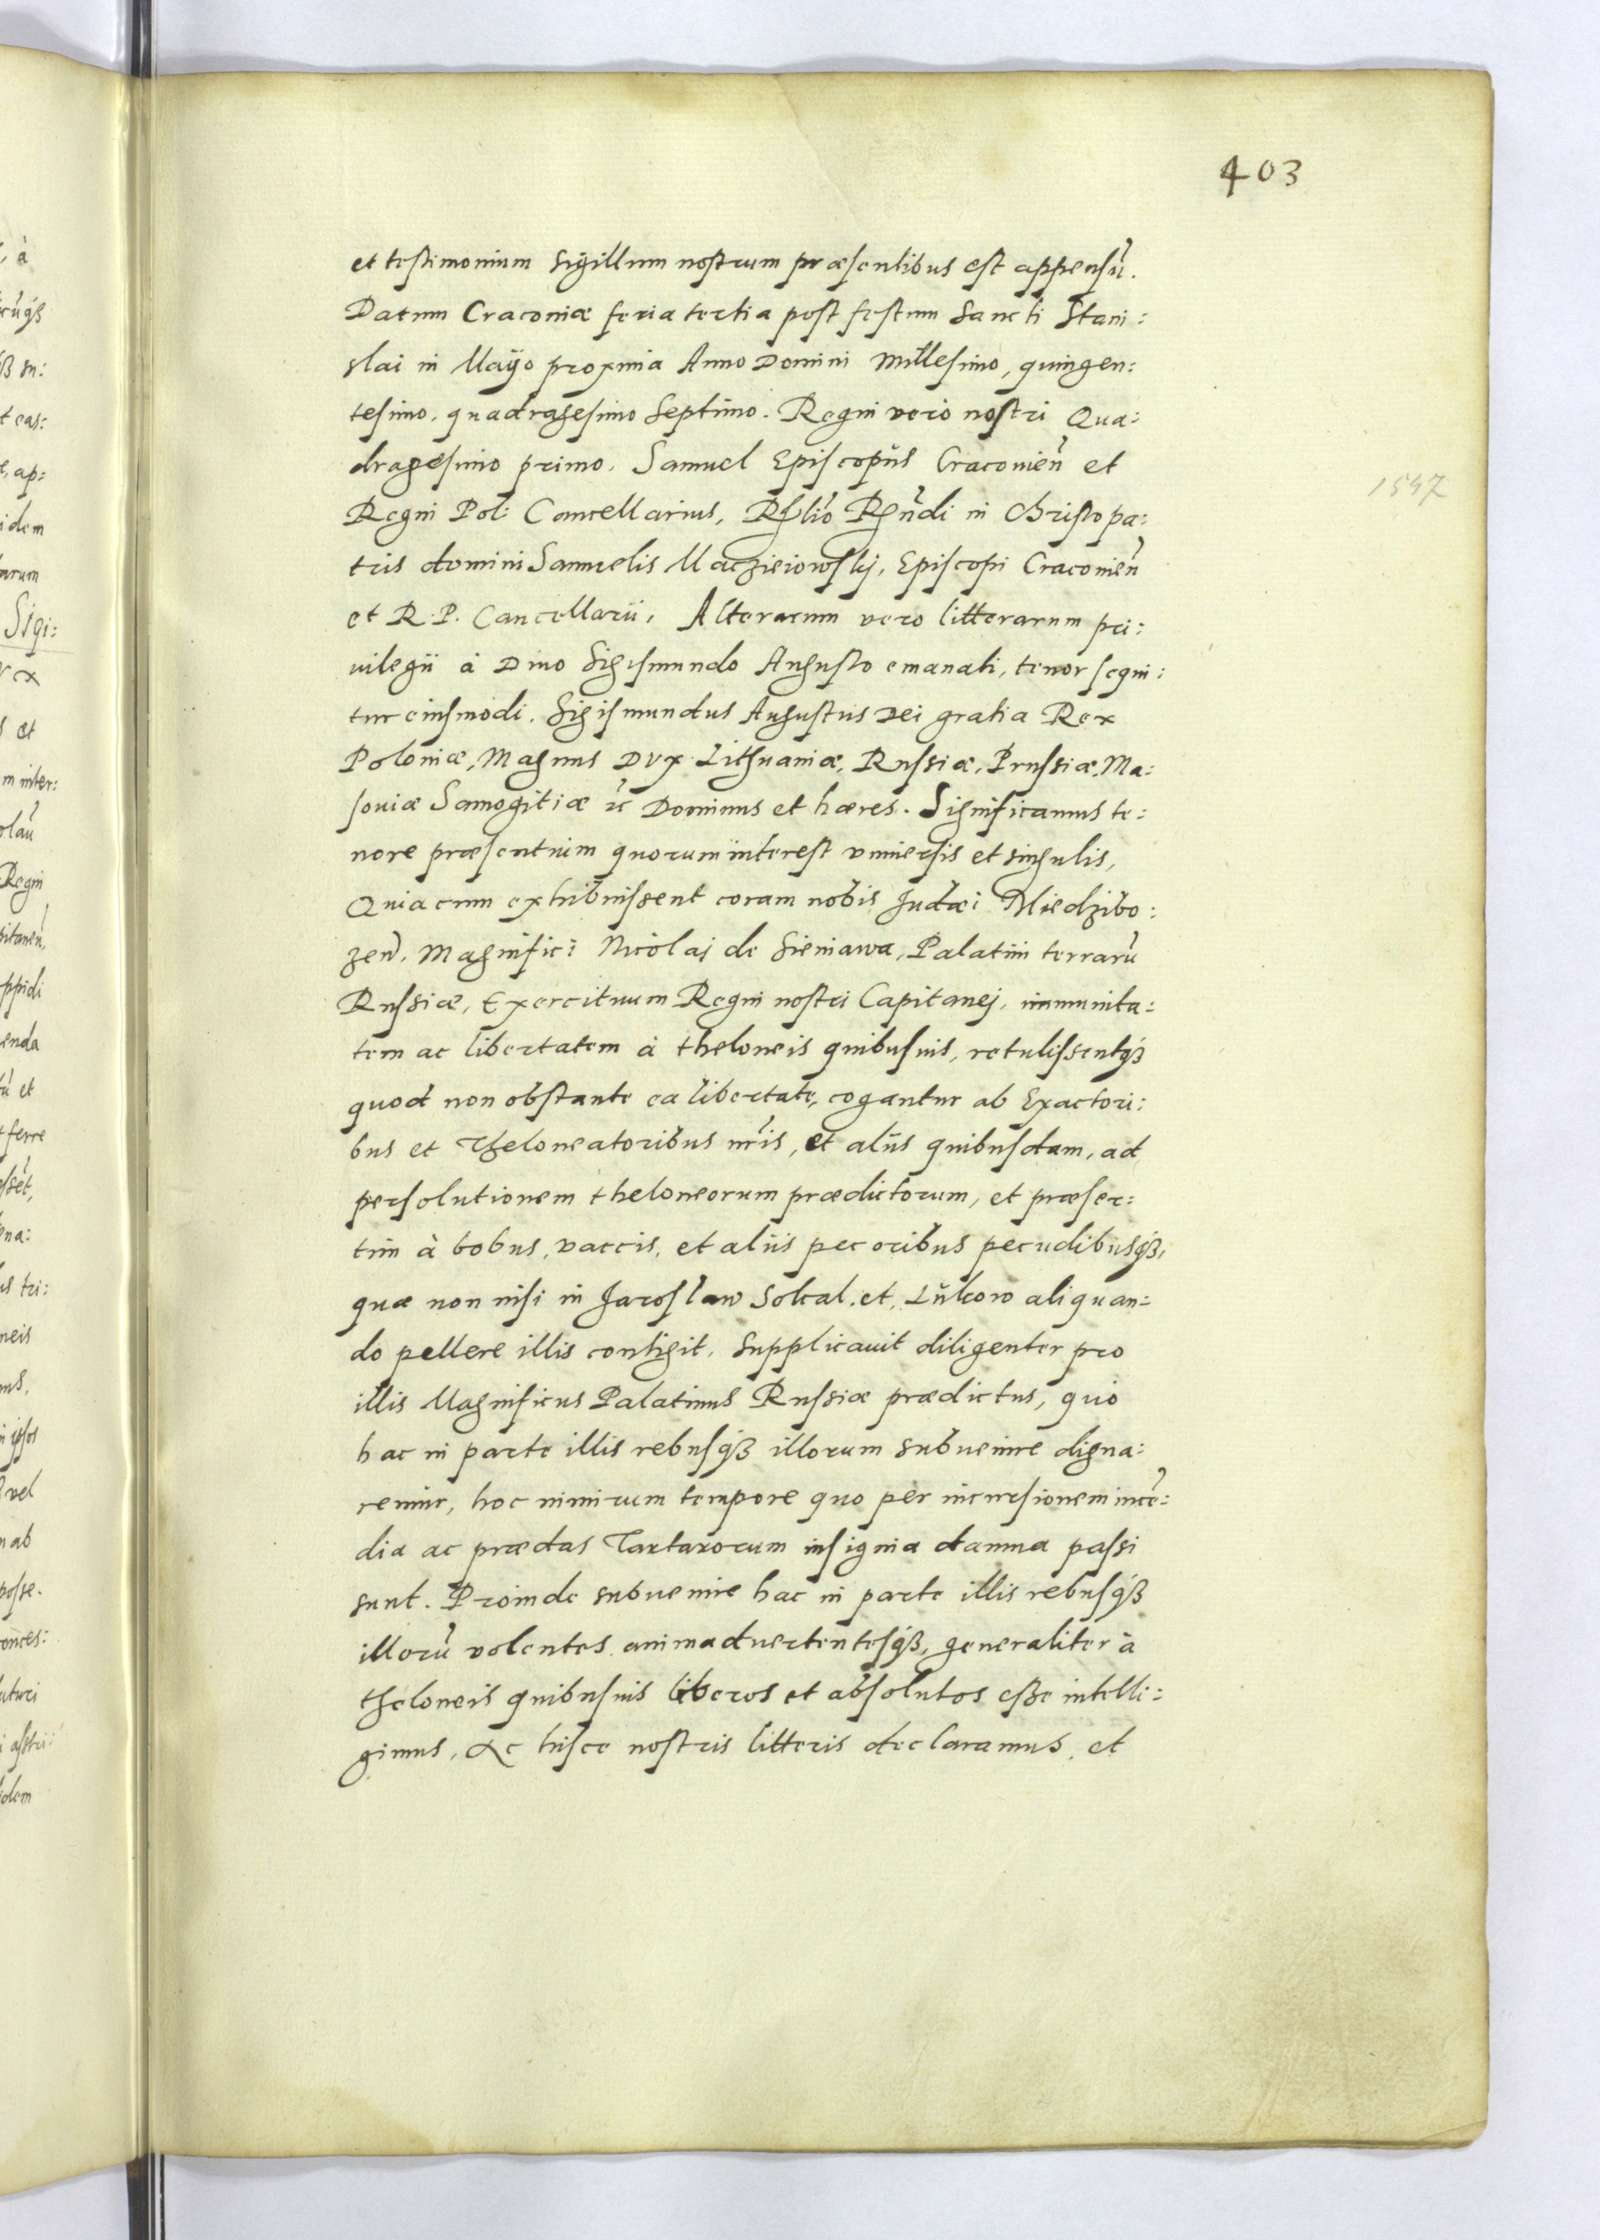 403
et testimonium Sigillum nostrum præsentibus est appensũ.
Datum Cracoviæ feria tertia post festum Sancti Stani:
slai in Mayo proxima Anno Domini Millesimo, quingen:
tesimo, quadragesimo Septimo. Regni vero nostri Qua:
dragesimo primo. Samuel Episcopus Cracovień et
Regni Pol: Cancellarius, Rlio Rndi in Christo pa:
1547
tris domini Samuelis Maczieiowskj, Episcopi Cracovień
et R. P. Cancellarii, Alterarum vero litterarum pri:
uilegii à Diuo Sigismundo Augusto emanati, tenor sequi:
tur eiusmodi. Sigismundus Augustus Dei gratia Rex
Poloniæ, Magnus Dux Lithuaniæ, Russiæ, Prussiæ, Ma:
souiæ Samogitiæ ꝛc Dominus et hæres. Significamus te:
nore præsentium quorum interest vniuersis et singulis,
Quia cum exhibuissent coram nobis Judæi Miedzibo:
zeń. Magnifici Nicolaj de Sieniawa, Palatini terrarũ
Russiæ, Exercituum Regni nostri Capitanej, immunita:
tem ac libertatem à theloneis quibusuis, retulissentqꝫ
quod non obstante ea libertate, cogantur ab Exactori:
bus et Theloneatoribus nr̃is, et aliis quibusdam, ad
persolutionem theloneorum prædictorum, et præser:
tim à bobus, vaccis, et aliis pecoribus pecudibusqꝫ,
quæ non nisi in Jaroslaw Sokal, et, Lukow aliquan:
do pellere illis contigit. Supplicauit diligenter pro
illis Magnificus Palatinus Russiæ prædictus, quo
hac in parte illis rebusqꝫ illorum subuenire digna:
remur, hoc nimirum tempore quo per incursionem incẽ:
dia ac prædas Tartarorum insignia damna passi
sunt. Proinde subuenire hac in parte illis rebusqꝫ
illorũ volentes animaduertentesqꝫ, generaliter à
theloneis quibusuis liberos et absolutos esse intelli:
gimus, Ac hisce nostris litteris declaramus, et